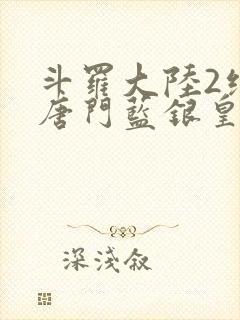 斗羅大陸2
唐門藍銀皇
深淺叙